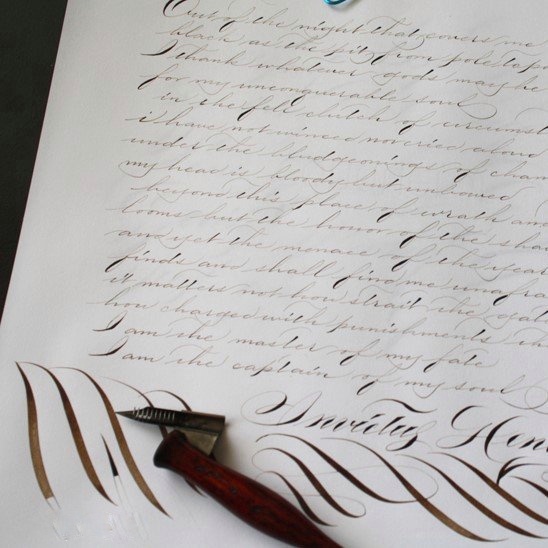 Out of the night that covers me
black as the pit from pole to po
I thank whatever gods may be
for my unconquerable soul
in the fell clutch of circumst
i have not winced nor cried aloud
under the bludgeonings of chan
my head is bloody but unbowed
beyond this place of wrath and
looms but the honor of the sha
and yet the menace of the year
finds and shall find me unafra
it matters not how strait the gat
how charged with punishments th
I am the master of my fate
I am the captain of my soul
Invictus Hen